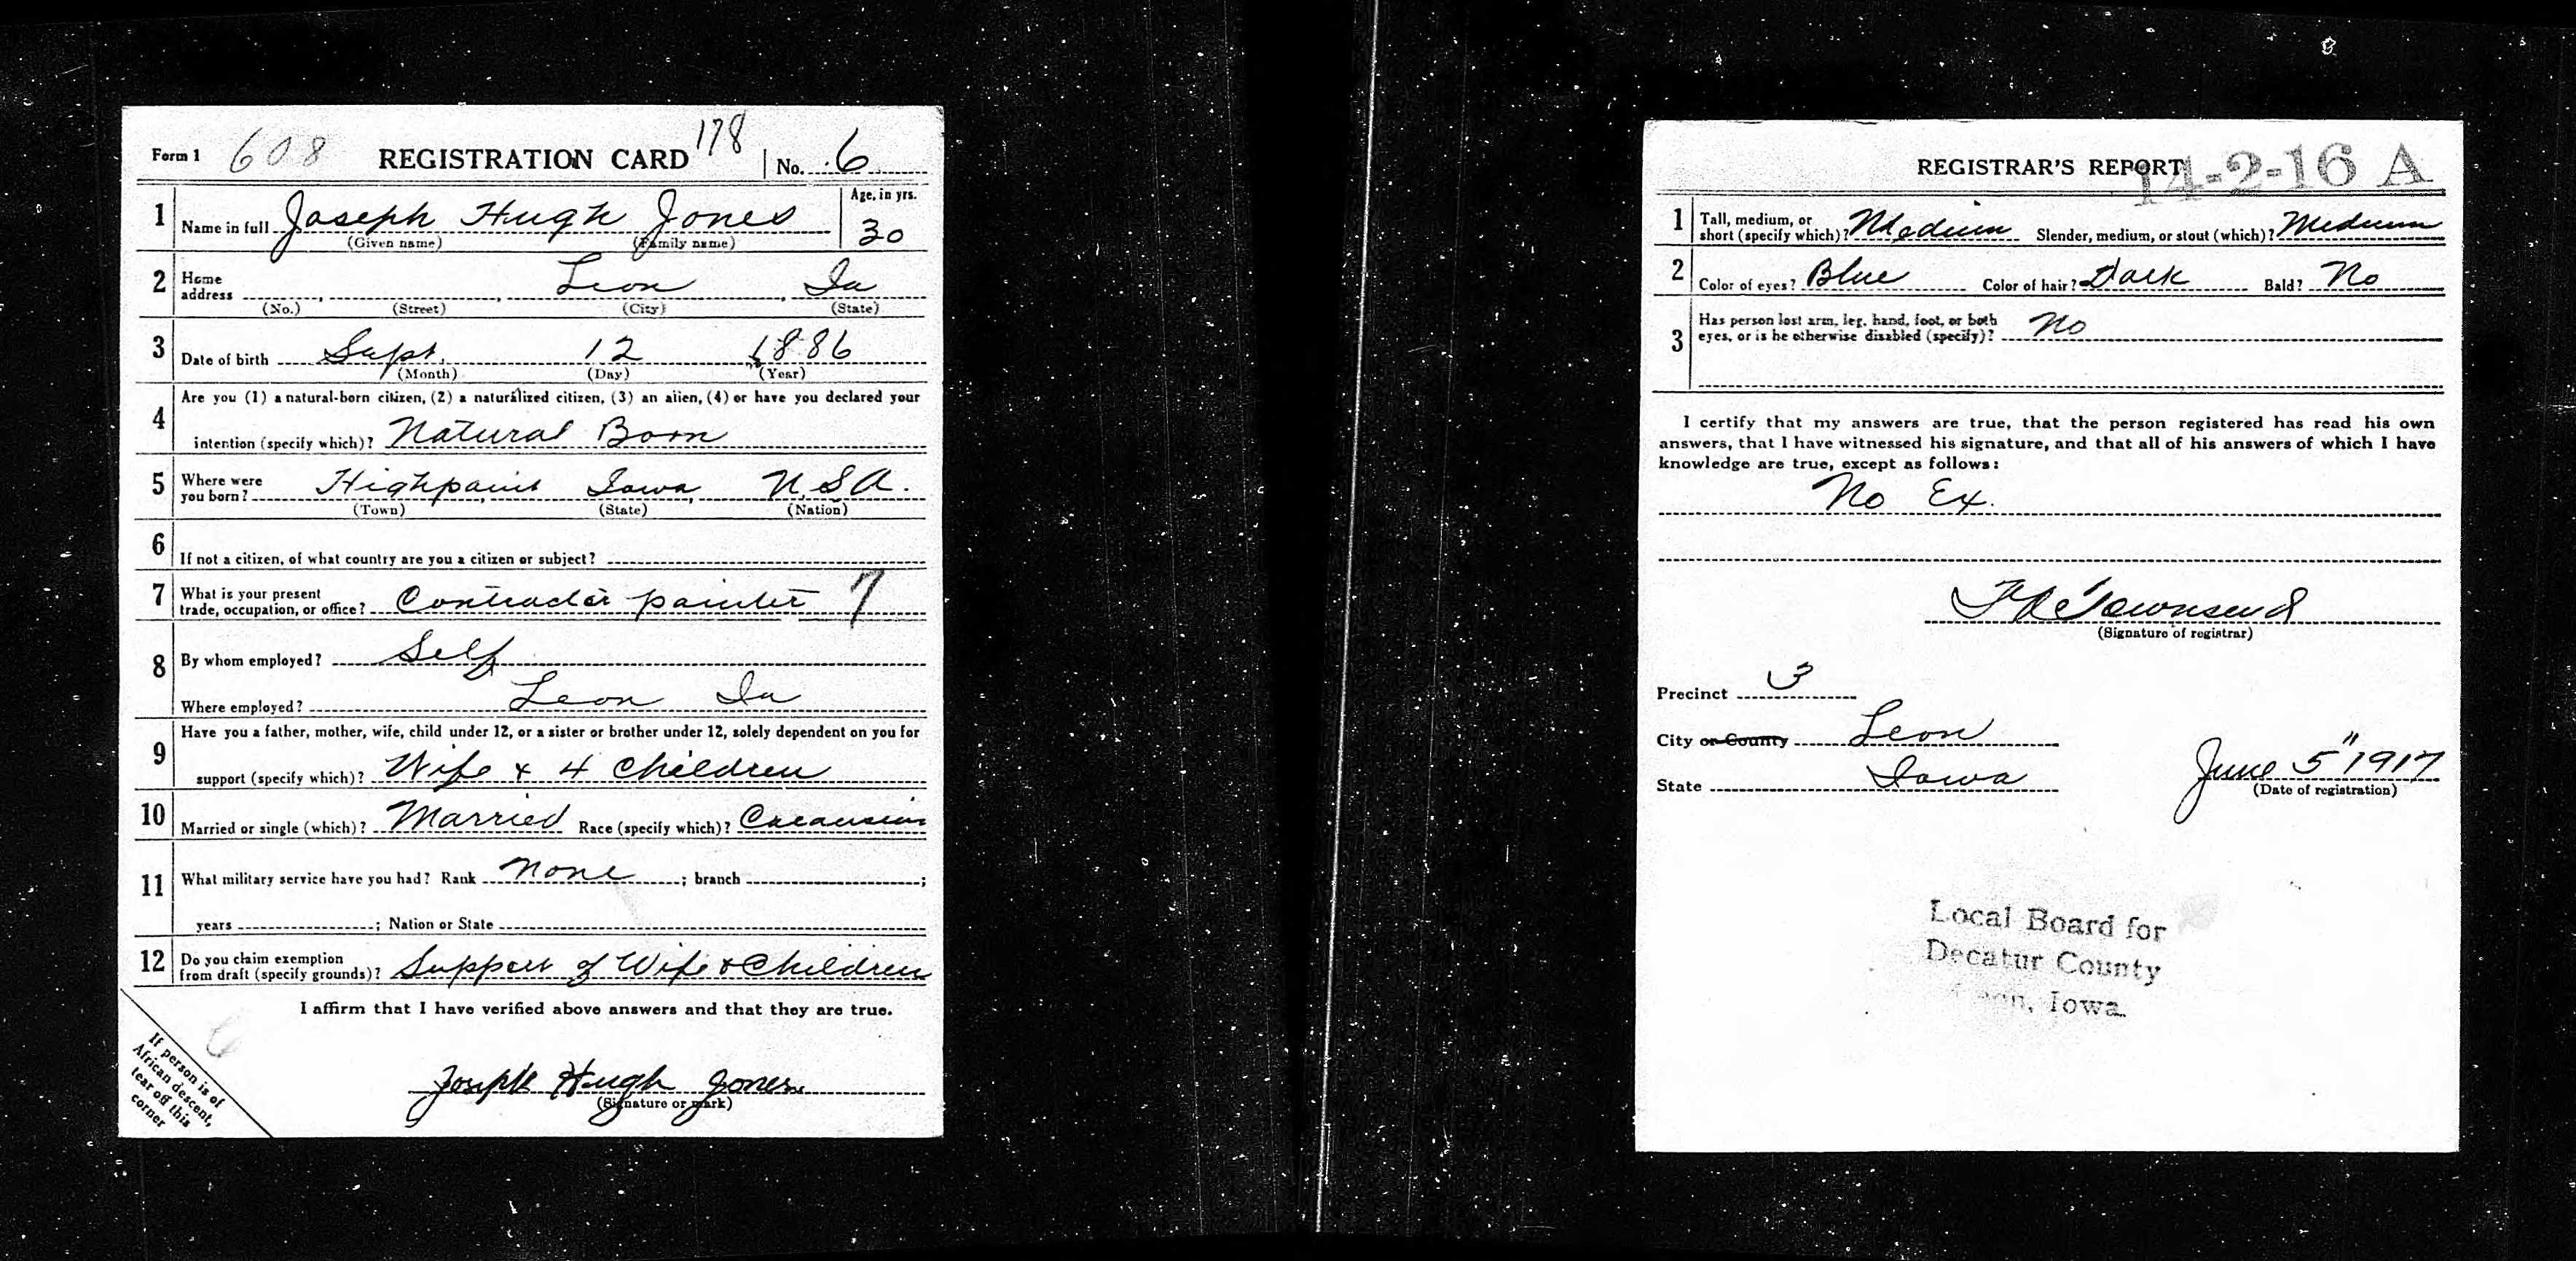 Form 1 608 REGISTRATION CARD 178 No. 6
1 Name in full Joseph Hugh Jones Age, in yrs. 30
(Given name) (Family name)
2 Home address Leon Ia
(No.) (Street) (City) (State)
3 Date of birth Sept. 12 1886
(Month) (Day) (Year)
4 Are you (1) a natural-born citizen, (2) a naturalized citizen, (3) an alien, (4) or have you declared your
intention (specify which)? Natural Born
5 Where were you born? Highpoint Iowa U.S.A.
(Town) (State) (Nation)
6 If not a citizen, of what country are you a citizen or subject?
7 What is your present
trade, occupation, or office? Contractor painter 7
8 By whom employed? Self
Where employed? Leon Ia
9 Have you a father, mother, wife, child under 12, or a sister or brother under 12, solely dependent on you for
support (specify which)? Wife & 4 Children
10 Married or single (which)? Married Race (specify which)? Caucasian
11 What military service have you had? Rank None ; branch ;
years ; Nation or State
12 Do you claim exemption
from draft (specify grounds)? Support of Wife & Children
I affirm that I have verified above answers and that they are true.
6
Joseph Hugh Jones
(Signature or mark)
If person is of
African descent,
tear off this
corner
REGISTRAR'S REPORT 14-2-16 A
1 Tall, medium, or
short (specify which)? Medium Slender, medium, or stout (which)? Medium
2 Color of eyes? Blue Color of hair? Dark Bald? No
3 Has person lost arm, leg, hand, foot, or both
eyes, or is he otherwise disabled (specify)? No
I certify that my answers are true, that the person registered has read his own
answers, that I have witnessed his signature, and that all of his answers of which I have
knowledge are true, except as follows:
No Ex.
Townsend
(Signature of registrar)
Precinct 3
City or County Leon
State Iowa
June 5" 1917
(Date of registration)
Local Board for
Decatur County
Leon, Iowa